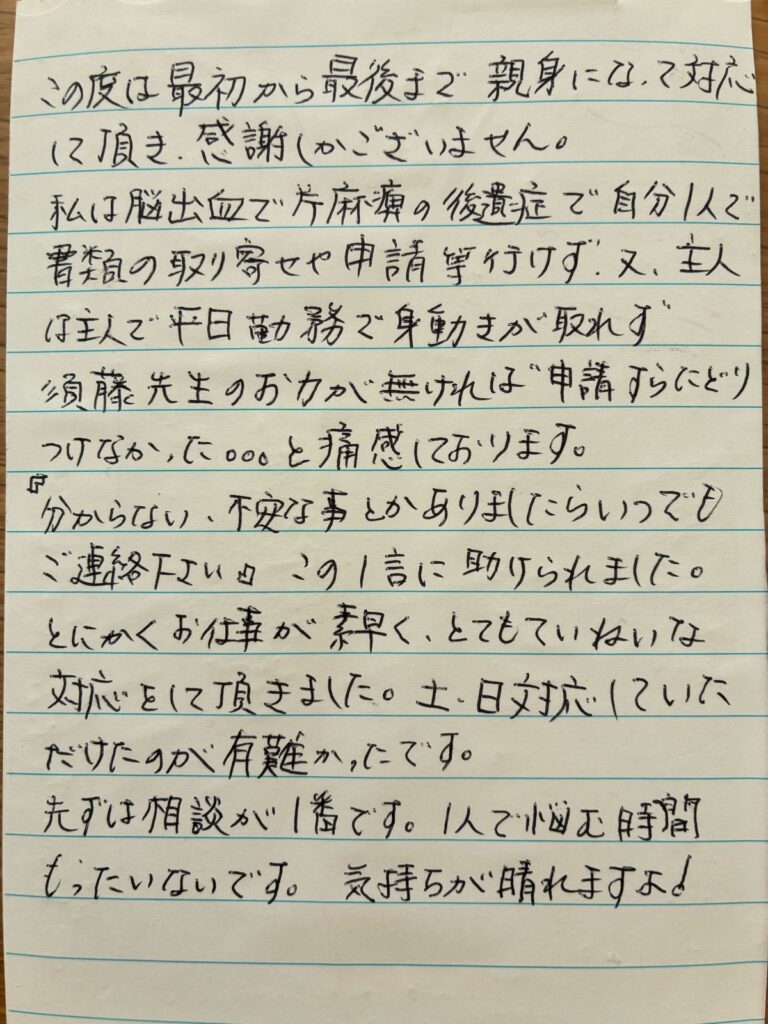 この度は最初から最後まで 親身になって対応
して頂き、感謝しかございません。
私は脳出血で片麻痺の後遺症で自分1人で
書類の取り寄せや申請等行けず、又、主人
は主人で平日勤務で身動きが取れず
須藤先生のお力が無ければ申請すらたどり
つけなかった。。。と痛感しております。
『分からない、不安な事とかありましたらいつでも
ご連絡下さい』 この1言に助けられました。
とにかくお仕事が素早く、とてもていねいな
対応をして頂きました。土、日対応していた
だけたのが有難かったです。
先ずは相談が1番です。1人で悩む時間
もったいないです。 気持ちが晴れますよ!